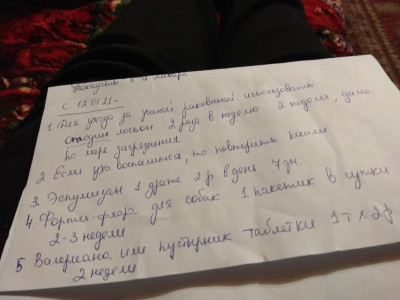 показать 8-9 января
с 12.01.21г.
1 Для ухода за ушной раковиной использовать
отодин лосьон 2 раза в неделю 2 недели, далее
по мере загрязнения
2 Если ухо воспалится, то повторить капли
3. Эспумизан 1 драже 2 р в день 7 дн
4 Форти-флора для собак 1 пакетик в сутки
2-3 недели
5 Валериана или пустырник таблетки 1 т х 2 р
2 недели